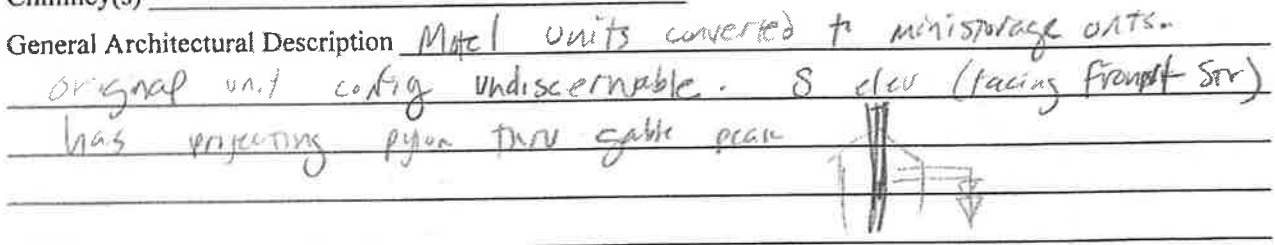 Chimney(s)
General Architectural Description Motel units converted to ministorage units.
original unit config undiscernable. S elev (facing Str)
has projecting pylon thru gable peak